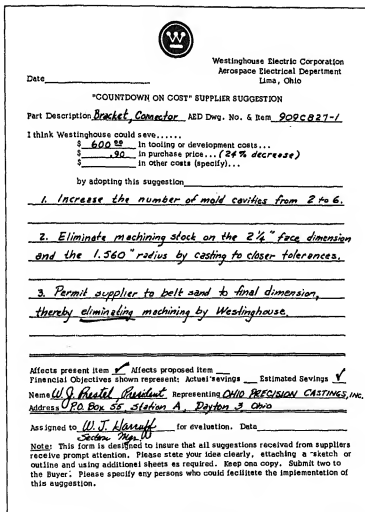 W
Westinghouse Electric Corporation
Aerospace Electrical Department
Lima, Ohio
Date
"COUNTDOWN ON COST" SUPPLIER SUGGESTION
Part Description Bracket, Connector AED Dwg. No. & Item 909C827-1
I think Westinghouse could seve......
$ 600 00 in tooling or development costs...
$ .90 in purchase price... (24% decrease)
$ in other costs (specify)...
by adopting this suggestion
1. Increase the number of mold cavities from 2 to 6.
2. Eliminate machining stock on the 2 1/4" face dimension
and the 1.560" radius by casting to closer tolerances.
3. Permit supplier to belt sand to final dimension,
thereby eliminating machining by Westinghouse.
Affects present item ✓ Affects proposed item
Financial Objectives shown represent: Actual savings Estimated Savings ✓
Name W. J. Prestel, President Representing OHIO PRECISION CASTINGS, INC.
Address P.O. Box 55, Station A, Dayton 3 Ohio
Assigned to W. J. for evaluation. Date
Section Mgr.
Note: This form is designed to insure that all suggestions received from suppliers
receive prompt attention. Please state your idea clearly, attaching a sketch or
outline and using additional sheets as required. Keep one copy. Submit two to
the Buyer. Please specify any persons who could facilitate the implementation of
this suggestion.